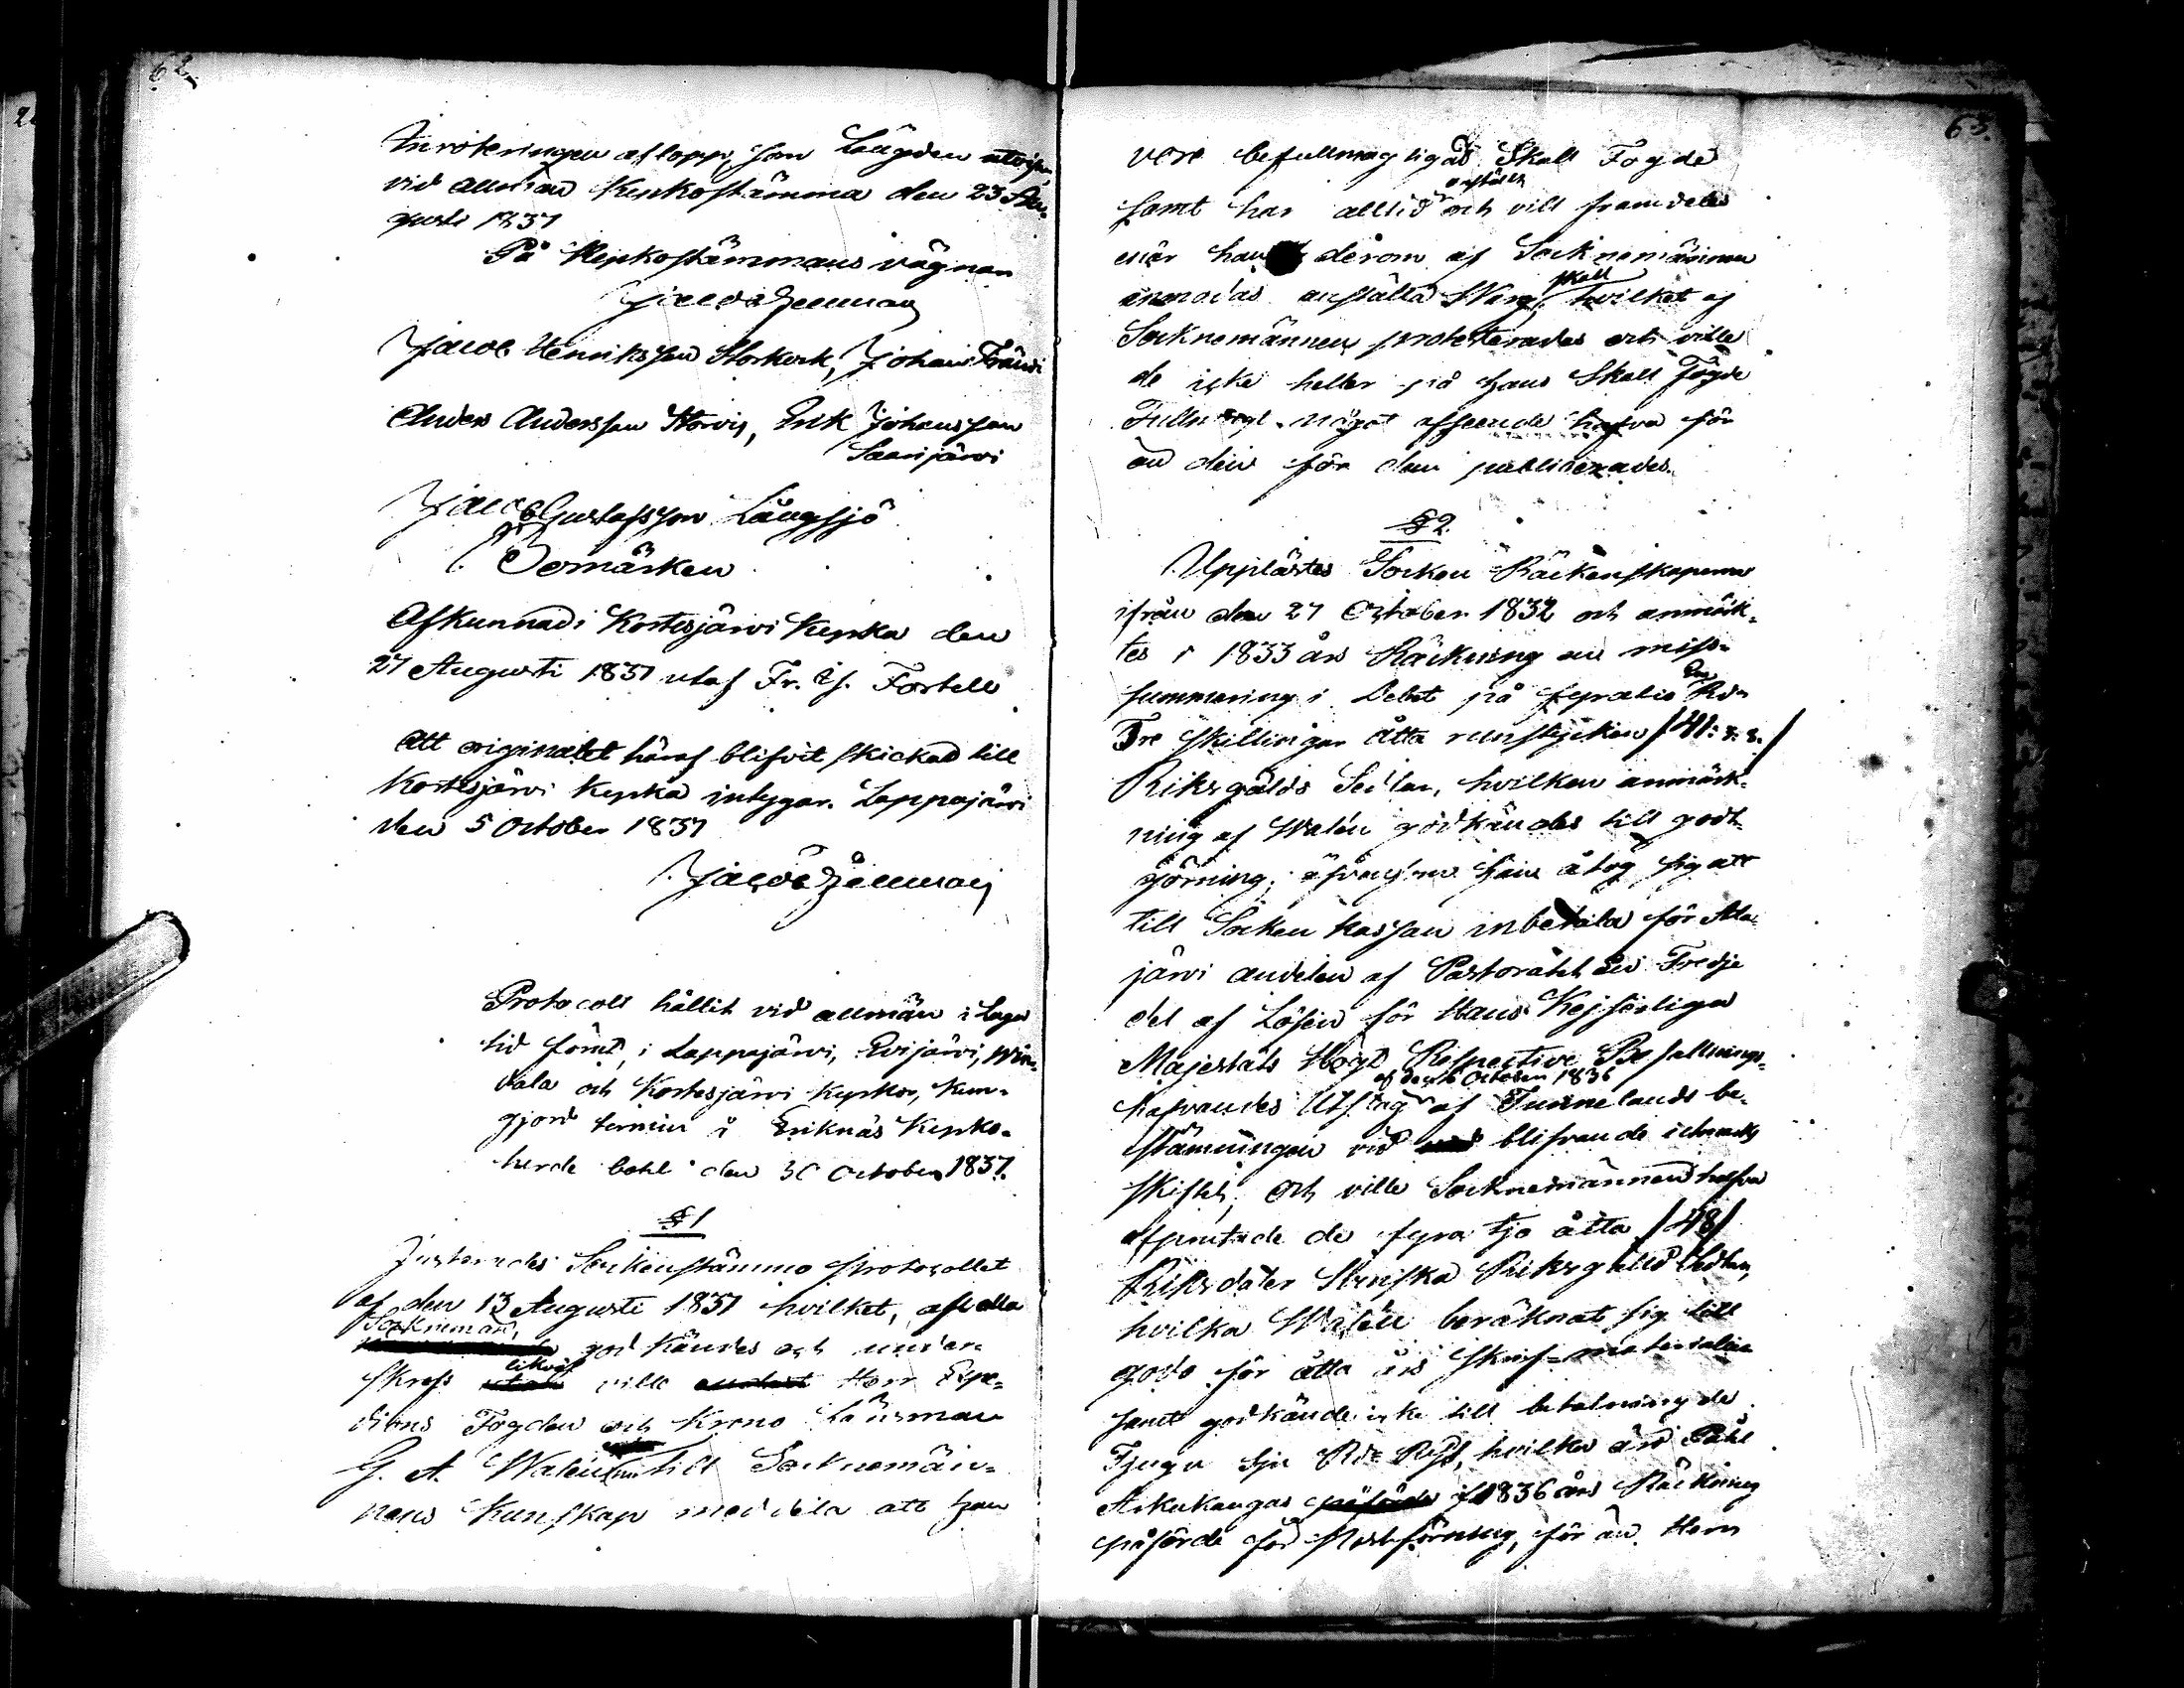 62.
Inroteringen aflopp, som Längden utvisar,
vid allmän Kyrkostämma den 23 Au-
gusti 1837
På Kyrkostämmans vägnar
Jacob Hellman
Jacob Henriksson Storkork, Johan Frändi
Anders Andersson Storvis, Erik Johansson
Saarijärvi
Jacob Gustafsson Långsjö
Bomärken
Afkunnad i Kortesjärvi Kyrka den
27 Augusti 1837 utaf Fr. J. Forsell
Att originalet häraf blifvit skickad till
Kortesjärvi Kyrka intygar. Lappajärvi
den 5 October 1837
Jacob Hellman
Protocoll hållit vid allmän i Laga
tid förut, i Lappajärvi, Evijärvi, Win-
dala och Kortesjärvi kyrkor, kun-
gjord termin å Eriknäs Kyrko-
herde bohl den 30 October 1837.
§ 1
Justerades Sockenstämmo Protocollet
af den 13 Augusti 1837 hvilket, af alla
Sockneman,
godkändes och under-
likväl
skrefs ville Herr Expe-
ditions Fogden och Krono Länsman
G. A. Walén till Sockenmän-
nens kunskap meddela att han
63.
vore befullmägtigad Skall Fogde
anstält
samt har alltid och vill framdeles
när han derom af Socknemännen
skall
anmodas anställa Warg, hvilket af
Socknemännen protesterades och ville
de icke heller på hans Skall Fogde
Fullmagt något afseende hafva för
än den för dem publicerades.
§ 2.
Upplästes Socken Räkenskaperna
ifrån den 27 October 1832 och anmärk-
tes i 1833 års Räkning en miss-
summering i Debet på fyratio En Rdr
Tre skillingar åtta runstycken /41: 3: 8./
Riksgälds Sedlar, hvilken anmärk-
ning af Walén godkändes till godt-
görning; äfvensom han åtog sig att
till Socken kassan inbetala för Ala-
järvi andelen af Pastoratet en Tredje
del af Lösen för Hans Kejserliga
Majestäts Högt Respective Befallnings-
af den 16 October 1836
hafvandes Utslag af Tunnelands be-
stämningen vid blifvande
skiftet; och ville Socknemännen hafva
afprutade de fyratio åtta /48/
Riksdaler Svenska Riksgälds Sedlar,
hvilka Walén beräknat sig till
godo för åtta års skrif-materialier
samt godkände icke till betalning de
Tjugu sju Rdr Rgs, hvilka än Påhl
Arkukangas i 1836 års Räkning
påförde för Postförning, för än Herr